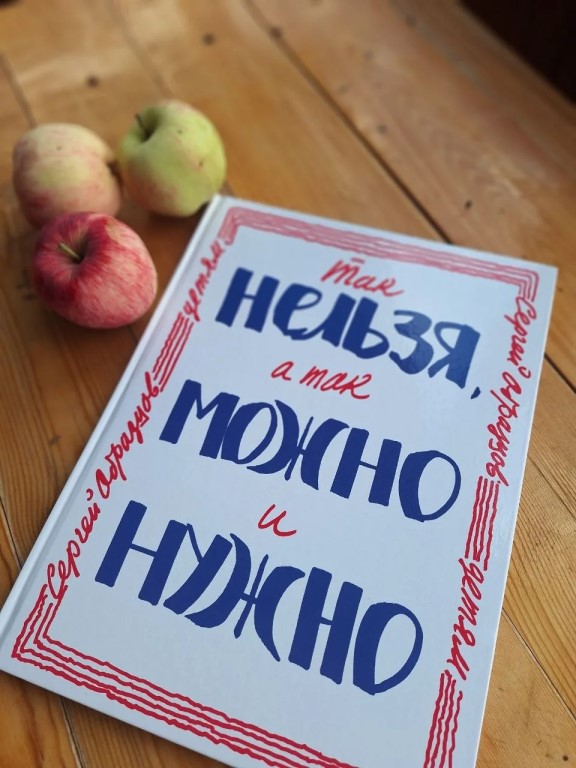 Так
нельзя,
а так
можно
и
нужно
Сергей Образцов
детям
Сергей Образцов
детям